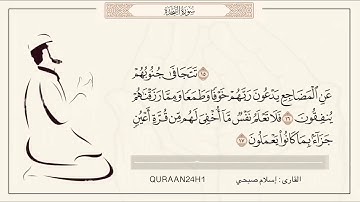 سورة السجدة
١٥ تَتَجَافَىٰ جُنُوبُهُمْ
عَنِ ٱلْمَضَاجِعِ يَدْعُونَ رَبَّهُمْ خَوْفًا وَطَمَعًا وَمِمَّا رَزَقْنَٰهُمْ
يُنفِقُونَ ١٦ فَلَا تَعْلَمُ نَفْسٌ مَّآ أُخْفِىَ لَهُم مِّن قُرَّةِ أَعْيُنٍ
جَزَآءًۢ بِمَا كَانُوا۟ يَعْمَلُونَ ١٧
القارئ : إسلام صبحي
QURAAN24H1